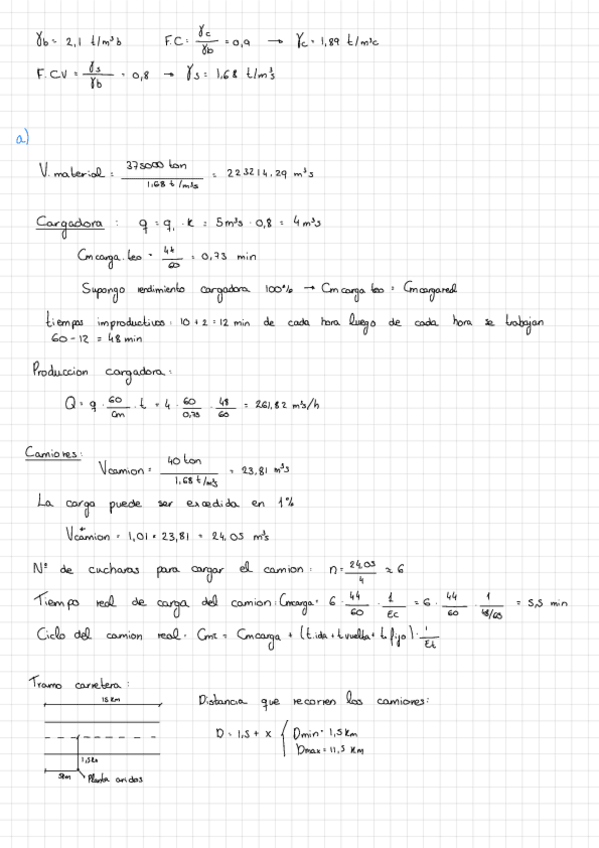 γb = 2,1 t/m³b   F.C = γc/γb = 0,9 → γc = 1,89 t/m³c
F.CV = γs/γb = 0,8 → γs = 1,68 t/m³s
a)
V. material = 375000 ton / 1,68 t/m³s = 223214,29 m³s
Cargadora : q = q₁ · K = 5m³s · 0,8 = 4 m³s
Cm carga. teo = 44/60 = 0,73 min
Supongo rendimiento cargadora 100% → Cm carga teo = Cm carga real
tiempos improductivos : 10 + 2 = 12 min de cada hora luego de cada hora se trabajan
60 - 12 = 48 min
Produccion cargadora :
Q = q · 60/Cm · t = 4 · 60/0,73 · 48/60 = 261,82 m³s/h
Camiones :
Vcamion = 40 ton / 1,68 t/m³s = 23,81 m³s
La carga puede ser excedida en 1%
Vcamion⁺ = 1,01 · 23,81 = 24,05 m³s
Nº de cucharas para cargar el camion : n = 24,05/4 ≈ 6
Tiempo real de carga del camion : Cmcarga = 6 · 44/60 · 1/Ec = 6 · 44/60 · 1/(48/60) = 5,5 min
Ciclo del camion real = Cmt = Cmcarga + (t.ida + t.vuelta + t.fijo) · 1/Et
Tramo carretera :
15 km
Distancia que recorren los camiones :
D = 1,5 + x { Dmin = 1,5 km
Dmax = 11,5 km
1,5km
5km
Planta aridos